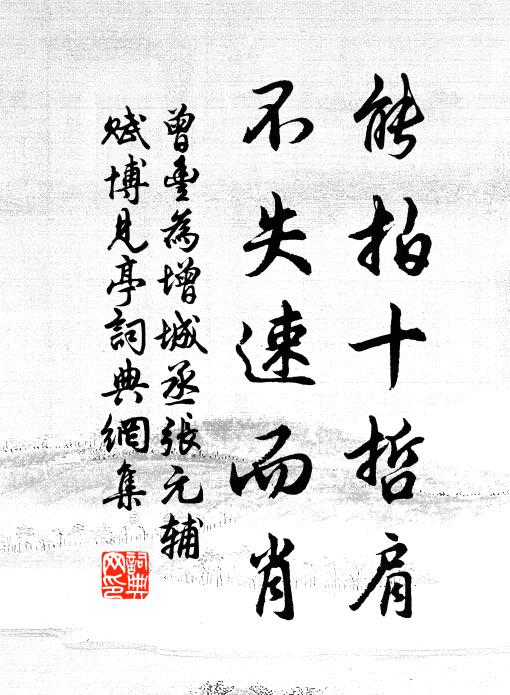 能拍十哲肩
不失速而肖
曾豐為增城丞張元輔
賦博見亭詞典網集
詞典
网印